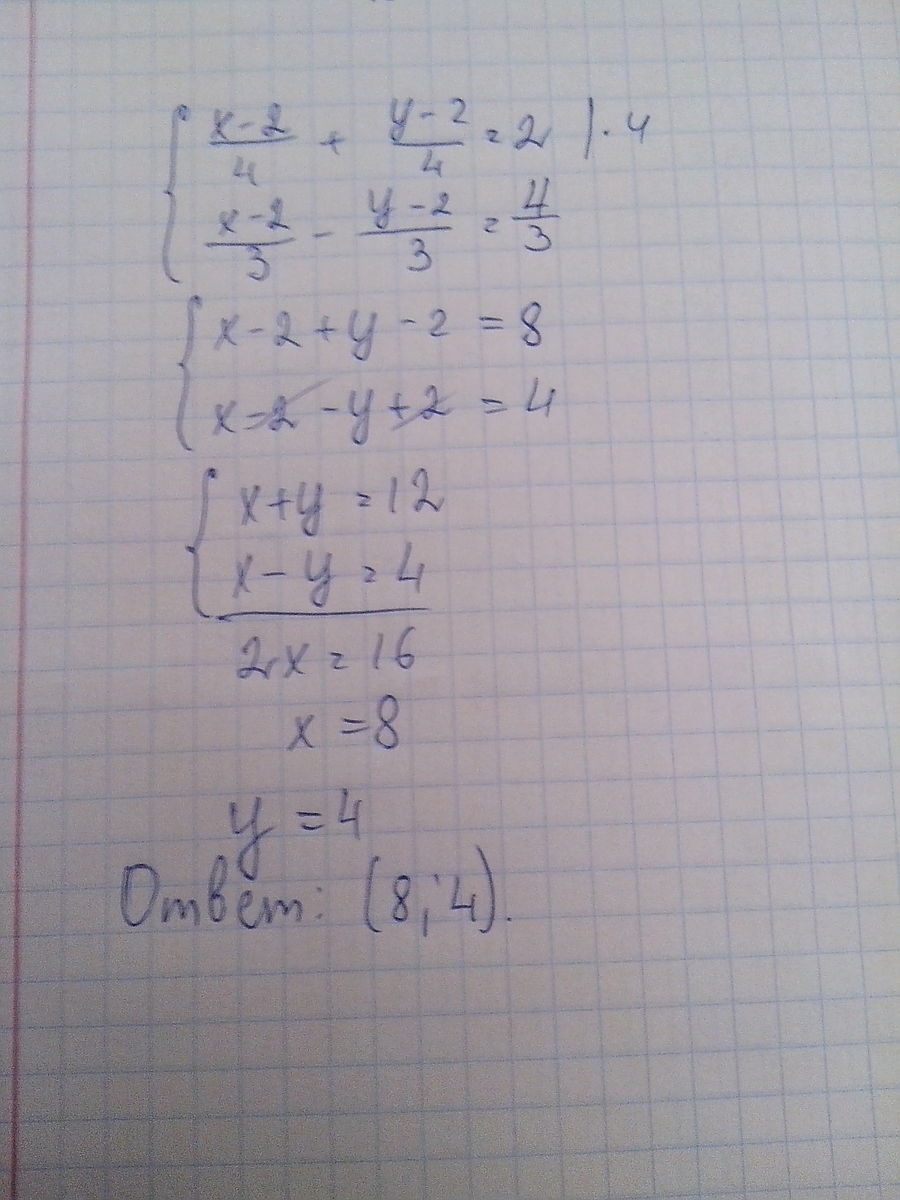 { (x-2)/4 + (y-2)/4 = 2 |·4
(x-2)/3 - (y-2)/3 = 4/3
{ x-2+y-2 = 8
x-2-y+2 = 4
{ x+y = 12
x-y = 4
2x = 16
x = 8
y = 4
Ответ: (8; 4).